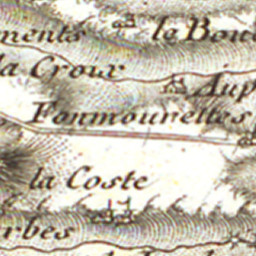 ments le Bou
la Croix
Aup
Fonmourettes
la Coste
rbes